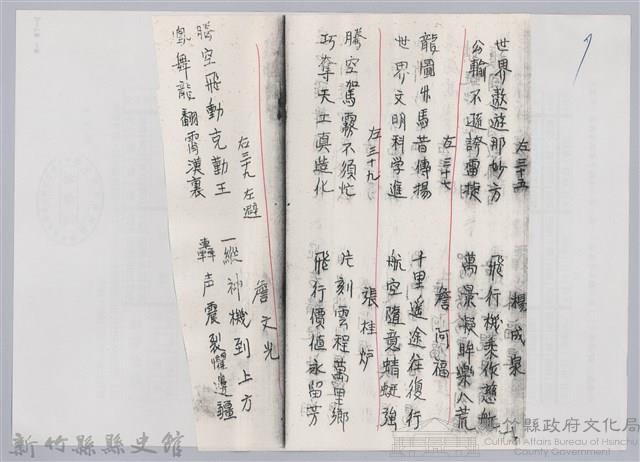 左三十五 楊成泉
世界遨遊那妙方 飛行機乘作慈航
公輸不遜誇雷捷 萬景凝眸樂八荒
左三十七 詹阿福
龍圖水馬昔傳揚 十里遙途往復行
世界文明科学進 航空隨意蜻蜓強
左三十九 張桂炉
騰空駕霧不須忙 片刻雲程萬里鄉
巧奪天工真造化 飛行價值永留芳
右三十九 左避 詹文光
騰空飛動克勤王 一縱神機到上方
鳳舞龍翻霄漢裏 轟声震裂懼邊疆
新竹縣縣史館
新竹縣政府文化局
Cultural Affairs Bureau of Hsinchu
County Government